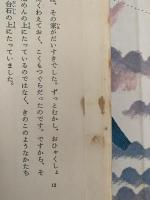 は、その家がだいすきでした。ずっとむかし、おひゃくしょ
くわえておく、こくもつぐらだったのです。ですから、そ
めんの上にたっているのではなく、きのこのようなかたち
台石の上にたっていました。
12